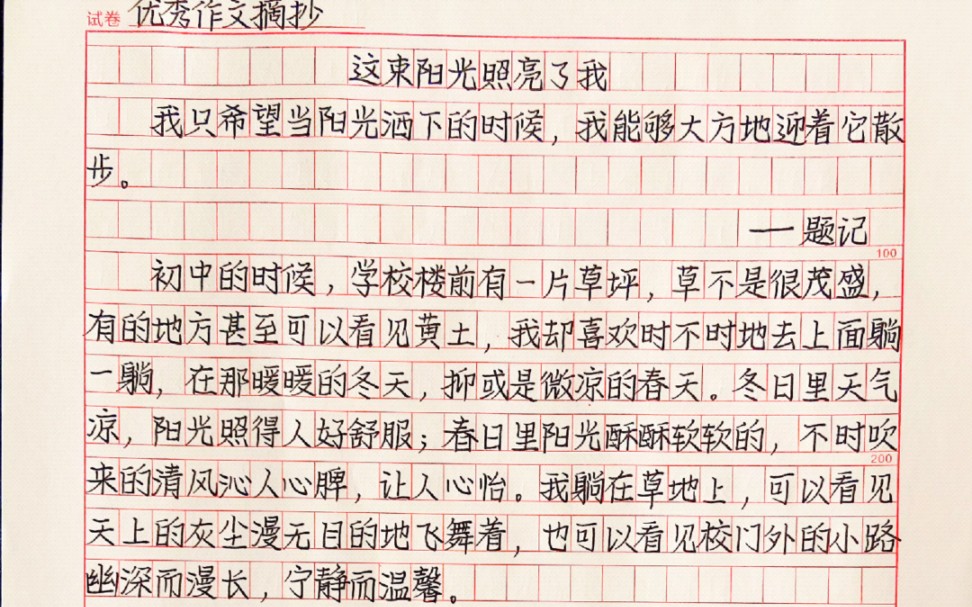 试卷 优秀作文摘抄
这束阳光照亮了我
我只希望当阳光洒下的时候，我能够大方地迎着它散
步。
——题记
100
初中的时候，学校楼前有一片草坪，草不是很茂盛，
有的地方甚至可以看见黄土，我却喜欢时不时地去上面躺
一躺，在那暖暖的冬天，抑或是微凉的春天。冬日里天气
凉，阳光照得人好舒服；春日里阳光酥酥软软的，不时吹
200
来的清风沁人心脾，让人心怡。我躺在草地上，可以看见
天上的灰尘漫无目的地飞舞着，也可以看见校门外的小路
幽深而漫长，宁静而温馨。